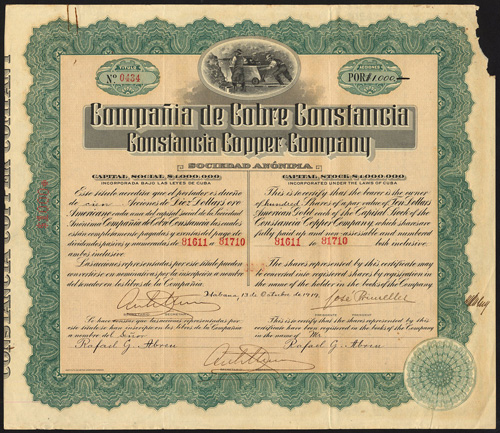 TITULO
Nº 0434
ACCIONES
POR $1,000.—
Compañia de Cobre Constancia
Constancia Copper Company
SOCIEDAD ANÓNIMA
CAPITAL SOCIAL $1.000.000
INCORPORADA BAJO LAS LEYES DE CUBA
Este título acredita que el portador es dueño
de cien Acciones de Diez Dollars oro
Americano cada una del capital social de la Sociedad
Anónima Compañia de Cobre Constancia, las cuales
están completamente pagadas y exentas del pago de
dividendos pasivos y numeradas de
81611 al 81710
ambos inclusive
Las acciones representadas por este título pueden
convertirse en nominativas por la inscripción a nombre
del tenedor en los libros de la Compañia.
CAPITAL STOCK $1.000.000
INCORPORATED UNDER THE LAWS OF CUBA
This is to certify that the bearer is the owner
of hundred Shares of a par value of Ten Dollars
American Gold each of the Capital Stock of the
Constancia Copper Company, which shares are
fully paid up and non-assessable and numbered
81611 to 81710
both inclusive
The shares represented by this certificate may
be converted into registered shares by registration in
the name of the holder in the books of the Company
Habana, 13 de Octubre de 1919.
Se hace constar que las acciones representadas por
este título se han inscripto en los libros de la Compañia
a nombre del Señor
Rafael G. Abreu
This is to certify that the shares represented by this
certificate have been registered in the books of the
Company in the name of Mr.
Rafael G. Abreu
CONSTANCIA COPPER COMPANY